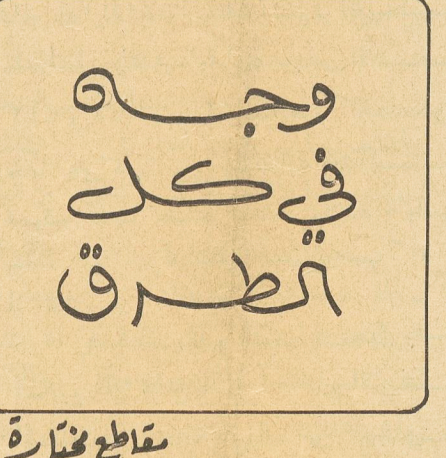 وجه
في كل
الطرق
مقاطع مختارة